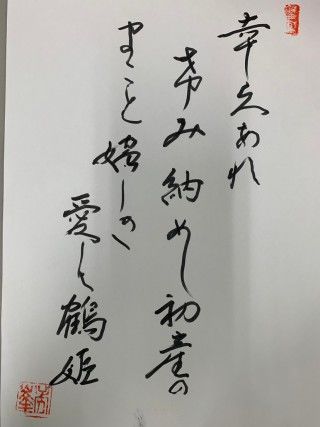 幸久あれ
希み納めし初産の
まこと嬉し
愛し鶴姫